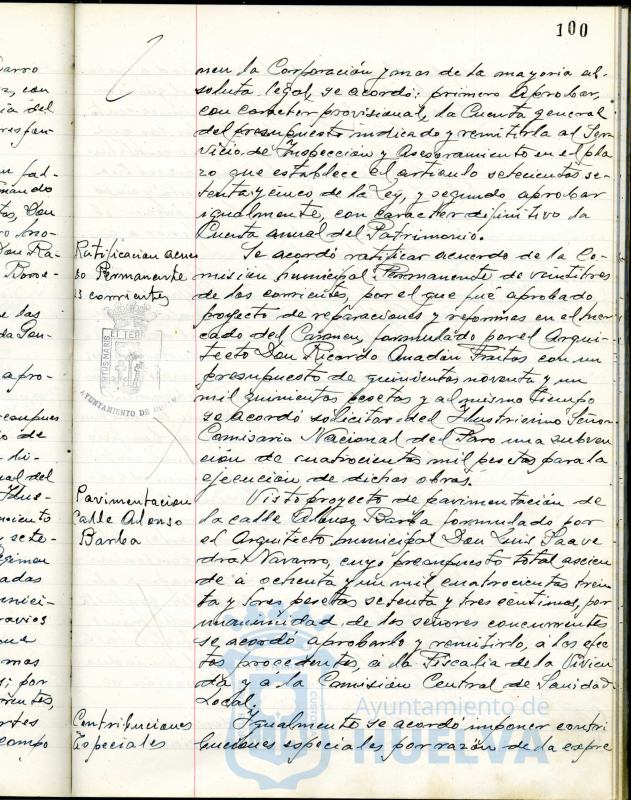 100
nen la Corporación y mas de la mayoria ab-
soluta legal, se acordó: primero aprobar,
con caracter provisional, la Cuenta general
del presupuesto indicado y remitirla al Ser-
vicio de Inspección y Asesoramiento en el pla
zo que establece el artículo setecientos se-
tenta y cinco de la Ley, y segundo aprobar
igualmente, con caracter definitivo la
Cuenta anual del Patrimonio.
Ratificacion acuer
do Permanente
corrientes
Se acordó ratificar acuerdo de la Co-
misión municipal Permanente de veintitres
de los corrientes, por el que fué aprobado
proyecto de reparaciones y reformas en el Mer-
cado del Carmen, formulado por el Arqui-
tecto Don Ricardo Anadón Frutos con un
presupuesto de quinientas noventa y un
mil quinientas pesetas y al mismo tiempo
se acordó solicitar del Ilustrisimo Señor
Comisario Nacional del Paro una subven-
ción de cuatrocientas mil pesetas para la
ejecución de dichas obras.
Pavimentacion
Calle Alonso
Barba
Visto proyecto de pavimentación de
la calle Alonso Barba formulado por
el Arquitecto municipal Don Luis Saave
dra Navarro, cuyo presupuesto total ascien
de á ochenta y un mil cuatrocientas trein
ta y tres pesetas setenta y tres centimos, por
unanimidad de los señores concurrentes
se acordó aprobarlo y remitirlo, á los efec
tos procedentes, á la Fiscalia de la Vivien
da y a la Comisión Central de Sanidad
Local.
Contribuciones
Especiales
Igualmente se acordó imponer contri
buciones especiales por razón de la expre
AYUNTAMIENTO DE HUELVA
Ayuntamiento de
HUELVA